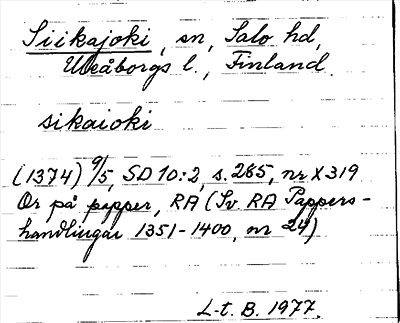 Siikajoki, sn, Salo hd,
Uleåborgs l., Finland
sikaioki
(1374) 9/5, SD 10:2, s. 265, nr X 319
Or på papper, RA (Sv. RA Pappers-
handlingar 1351-1400, nr 24)
L-t. B. 1977.